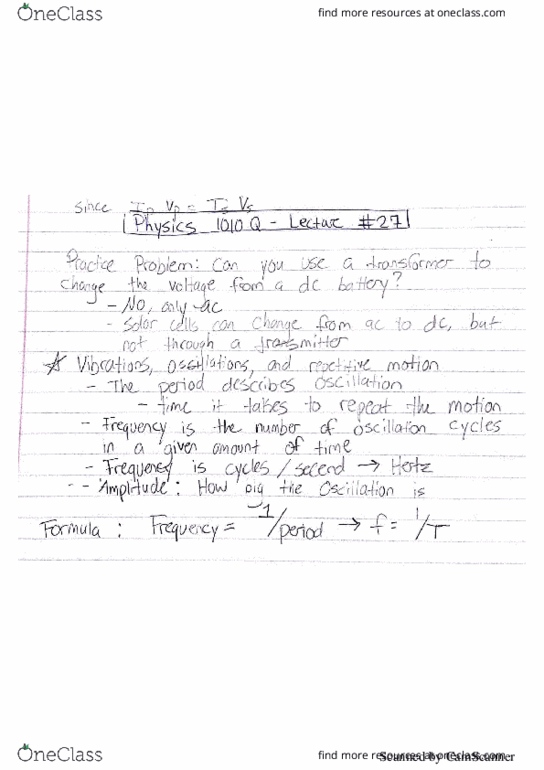 OneClass
find more resources at oneclass.com
since Ip Vp = Is Vs
Physics 1010Q - Lecture #27
Practice Problem: Can you use a transformer to
change the voltage from a dc battery?
- No, only ac
- Solar cells can change from ac to dc, but
not through a transmitter
☆ Vibrations, oscillations, and repetitive motion
- The period describes oscillation
- time it takes to repeat the motion
- Frequency is the number of oscillation cycles
in a given amount of time
- Frequency is cycles/second → Hertz
- - "Amplitude": How big the oscillation is
Formula: Frequency = 1/period → f = 1/T
OneClass
find more resources at oneclass.com
Scanned by CamScanner